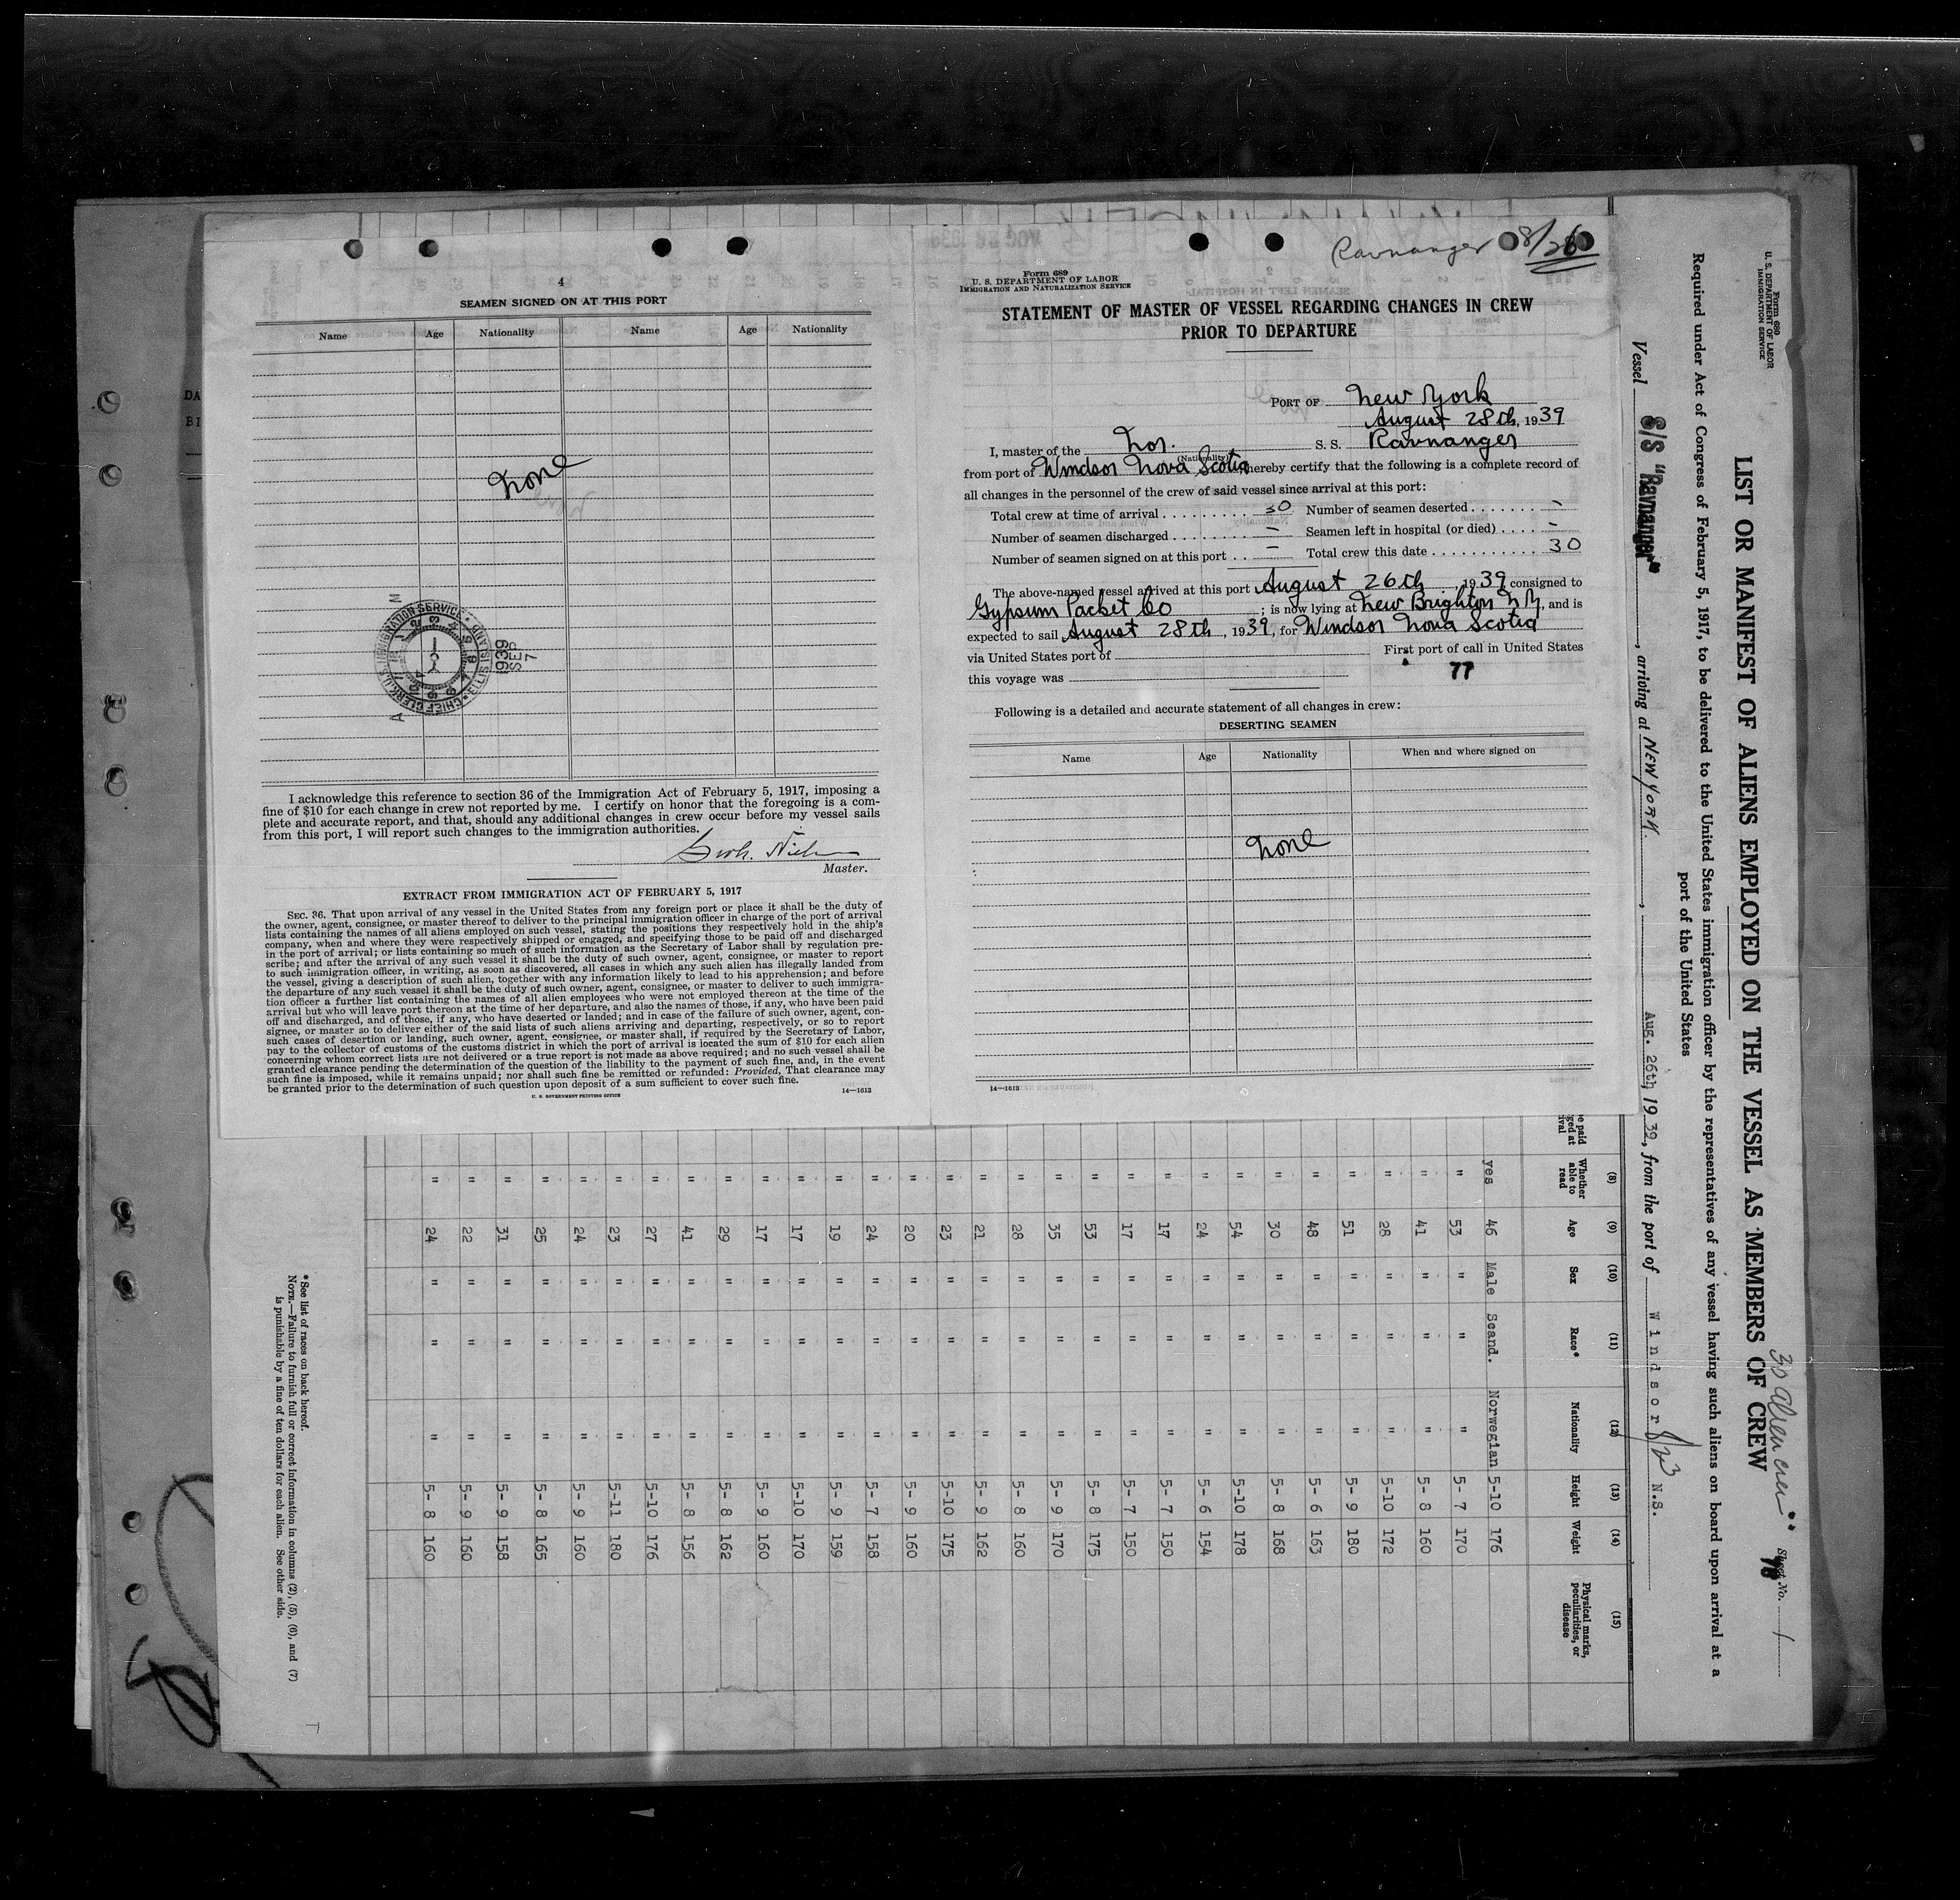 4
SEAMEN SIGNED ON AT THIS PORT
Name Age Nationality Name Age Nationality
None
CHIEF CLERK U.S. IMMIGRATION SERVICE ELLIS ISLAND
1939
SEP
7
I acknowledge this reference to section 36 of the Immigration Act of February 5, 1917, imposing a
fine of $10 for each change in crew not reported by me. I certify on honor that the foregoing is a com-
plete and accurate report, and that, should any additional changes in crew occur before my vessel sails
from this port, I will report such changes to the immigration authorities.
Master.
EXTRACT FROM IMMIGRATION ACT OF FEBRUARY 5, 1917
SEC. 36. That upon arrival of any vessel in the United States from any foreign port or place it shall be the duty of
the owner, agent, consignee, or master thereof to deliver to the principal immigration officer in charge of the port of arrival
lists containing the names of all aliens employed on such vessel, stating the positions they respectively hold in the ship's
company, when and where they were respectively shipped or engaged, and specifying those to be paid off and discharged
in the port of arrival; or lists containing so much of such information as the Secretary of Labor shall by regulation pre-
scribe; and after the arrival of any such vessel it shall be the duty of such owner, agent, consignee, or master to report
to such immigration officer, in writing, as soon as discovered, all cases in which any such alien has illegally landed from
the vessel, giving a description of such alien, together with any information likely to lead to his apprehension; and before
the departure of any such vessel it shall be the duty of such owner, agent, consignee, or master to deliver to such immigra-
tion officer a further list containing the names of all alien employees who were not employed thereon at the time of the
arrival but who will leave port thereon at the time of her departure, and also the names of those, if any, who have been paid
off and discharged, and of those, if any, who have deserted or landed; and in case of the failure of such owner, agent, con-
signee, or master so to deliver either of the said lists of such aliens arriving and departing, respectively, or so to report
such cases of desertion or landing, such owner, agent, consignee, or master shall, if required by the Secretary of Labor,
pay to the collector of customs of the customs district in which the port of arrival is located the sum of $10 for each alien
concerning whom correct lists are not delivered or a true report is not made as above required; and no such vessel shall be
granted clearance pending the determination of the question of the liability to the payment of such fine, and, in the event
such fine is imposed, while it remains unpaid; nor shall such fine be remitted or refunded: Provided, That clearance may
be granted prior to the determination of such question upon deposit of a sum sufficient to cover such fine.
U. S. GOVERNMENT PRINTING OFFICE 14—1613
Ravnanger 8/26
Form 689
U. S. DEPARTMENT OF LABOR
IMMIGRATION AND NATURALIZATION SERVICE
STATEMENT OF MASTER OF VESSEL REGARDING CHANGES IN CREW
PRIOR TO DEPARTURE
PORT OF New York
August 28th, 1939
I, master of the Nor. S. S. Ravnanger
(Nationality)
from port of Windsor Nova Scotia, hereby certify that the following is a complete record of
all changes in the personnel of the crew of said vessel since arrival at this port:
Total crew at time of arrival 30 Number of seamen deserted -
Number of seamen discharged - Seamen left in hospital (or died) -
Number of seamen signed on at this port - Total crew this date 30
The above-named vessel arrived at this port August 26th, 1939, consigned to
Gypsum Packet Co ; is now lying at New Brighton N.Y., and is
expected to sail August 28th, 1939, for Windsor Nova Scotia
via United States port of First port of call in United States
this voyage was 77
Following is a detailed and accurate statement of all changes in crew:
DESERTING SEAMEN
Name Age Nationality When and where signed on
None
14—1613
Form 689
U. S. DEPARTMENT OF LABOR
IMMIGRATION SERVICE
30 alien crew
Sheet No. 1
LIST OR MANIFEST OF ALIENS EMPLOYED ON THE VESSEL AS MEMBERS OF CREW
Required under Act of Congress of February 5, 1917, to be delivered to the United States immigration officer by the representatives of any vessel having such aliens on board upon arrival at a
port of the United States
Vessel S/S "Ravnanger", arriving at NEW YORK., Aug. 26th, 1939, from the port of Windsor N.S.
8/23
(8) (9) (10) (11) (12) (13) (14) (15)
Whether able to read Age Sex Race* Nationality Height Weight Physical marks, peculiarities, or disease
yes 46 Male Scand. Norwegian 5-10 176
" 53 " " " 5- 7 170
" 41 " " " 5- 8 160
" 28 " " " 5-10 172
" 51 " " " 5- 9 180
" 48 " " " 5- 6 163
" 30 " " " 5- 8 168
" 54 " " " 5-10 178
" 24 " " " 5- 6 154
" 17 " " " 5- 7 150
" 17 " " " 5- 7 150
" 53 " " " 5- 8 175
" 35 " " " 5- 9 170
" 28 " " " 5- 8 160
" 21 " " " 5- 9 162
" 23 " " " 5-10 175
" 20 " " " 5- 9 160
" 24 " " " 5- 7 158
" 19 " " " 5- 9 159
" 17 " " " 5-10 170
" 17 " " " 5- 9 160
" 29 " " " 5- 8 162
" 41 " " " 5- 8 156
" 27 " " " 5-10 176
" 23 " " " 5-11 180
" 24 " " " 5- 9 160
" 25 " " " 5- 8 165
" 31 " " " 5- 9 158
" 22 " " " 5- 9 160
" 24 " " " 5- 8 160
*See list of races on back hereof.
NOTE.—Failure to furnish full or correct information in columns (2), (5), (6), and (7)
is punishable by a fine of ten dollars for each alien. See other side.